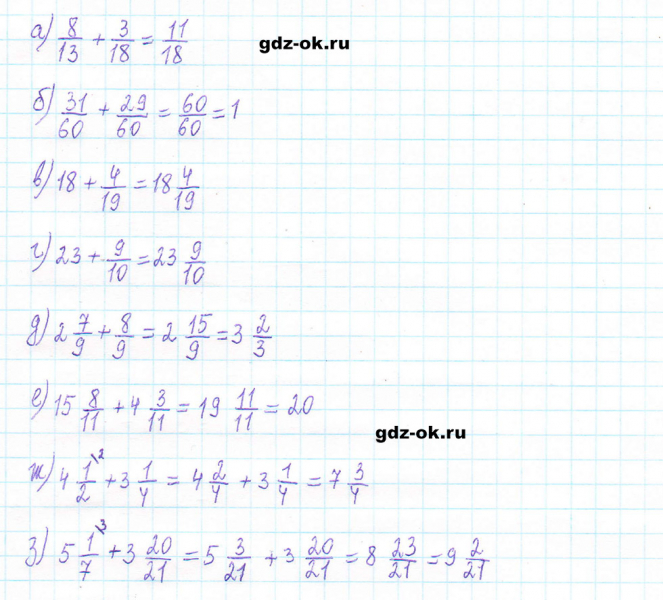 а) 8/13 + 3/18 = 11/18
gdz-ok.ru
б) 31/60 + 29/60 = 60/60 = 1
в) 18 + 4/19 = 18 4/19
г) 23 + 9/10 = 23 9/10
д) 2 7/9 + 8/9 = 2 15/9 = 3 2/3
е) 15 8/11 + 4 3/11 = 19 11/11 = 20
gdz-ok.ru
ж) 4 1\2/2 + 3 1/4 = 4 2/4 + 3 1/4 = 7 3/4
з) 5 1\3/7 + 3 20/21 = 5 3/21 + 3 20/21 = 8 23/21 = 9 2/21